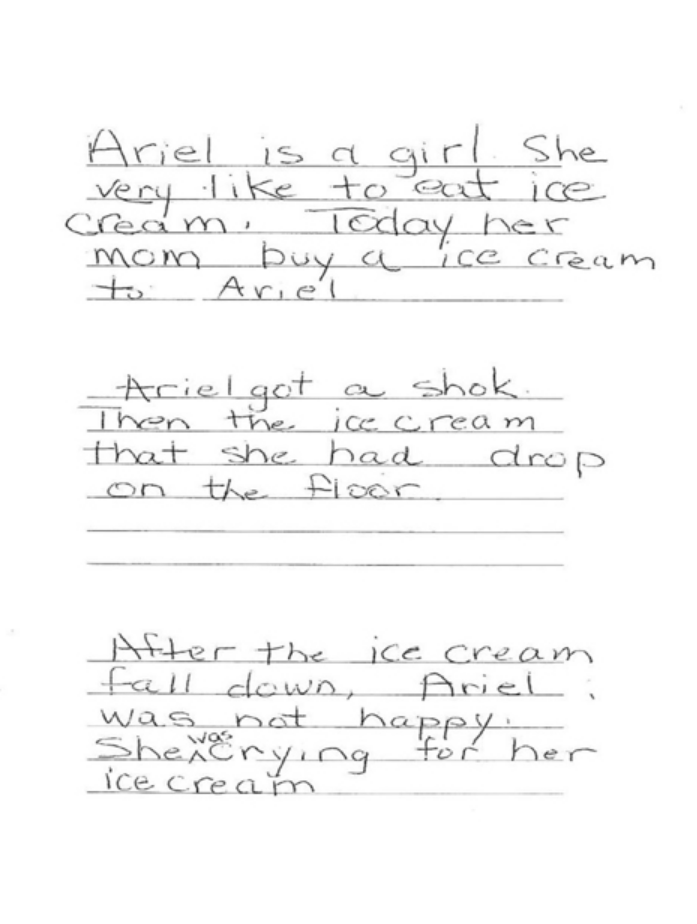 Ariel is a girl. She
very like to eat ice
cream. Today her
mom buy a ice cream
to Ariel
Ariel got a shok.
Then the ice cream
that she had drop
on the floor.
After the ice cream
fall down, Ariel
was not happy.
She was crying for her
ice cream